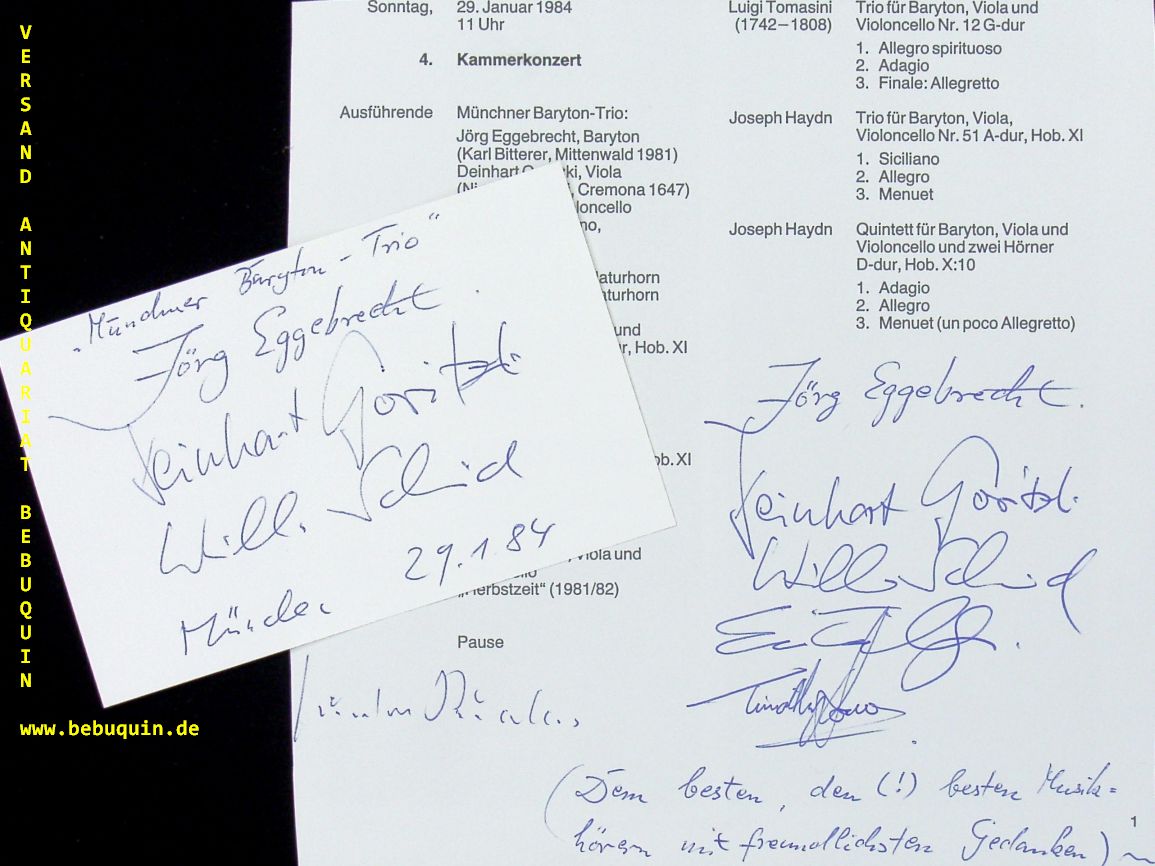 VERSAND ANTIQUARIAT BEBUQUIN
www.bebuquin.de
Sonntag, 29. Januar 1984
11 Uhr
4. Kammerkonzert
Ausführende Münchner Baryton-Trio:
Jörg Eggebrecht, Baryton
(Karl Bitterer, Mittenwald 1981)
Deinhart G ki, Viola
(Ni , Cremona 1647)
loncello
no,
aturhorn
aturhorn
und
r, Hob. XI
ob. XI
Viola und
„Herbstzeit“ (1981/82)
Pause
Luigi Tomasini Trio für Baryton, Viola und
(1742–1808) Violoncello Nr. 12 G-dur
1. Allegro spirituoso
2. Adagio
3. Finale: Allegretto
Joseph Haydn Trio für Baryton, Viola,
Violoncello Nr. 51 A-dur, Hob. XI
1. Siciliano
2. Allegro
3. Menuet
Joseph Haydn Quintett für Baryton, Viola und
Violoncello und zwei Hörner
D-dur, Hob. X:10
1. Adagio
2. Allegro
3. Menuet (un poco Allegretto)
„Münchner Baryton-Trio“
Jörg Eggebrecht.
Deinhart Goritzki
Willi Schmid
29.1.84
München
Jörg Eggebrecht.
Deinhart Goritzki
Willi Schmid
(Dem besten, den (!) besten Musik=
hörern mit freundlichsten Gedanken)
1